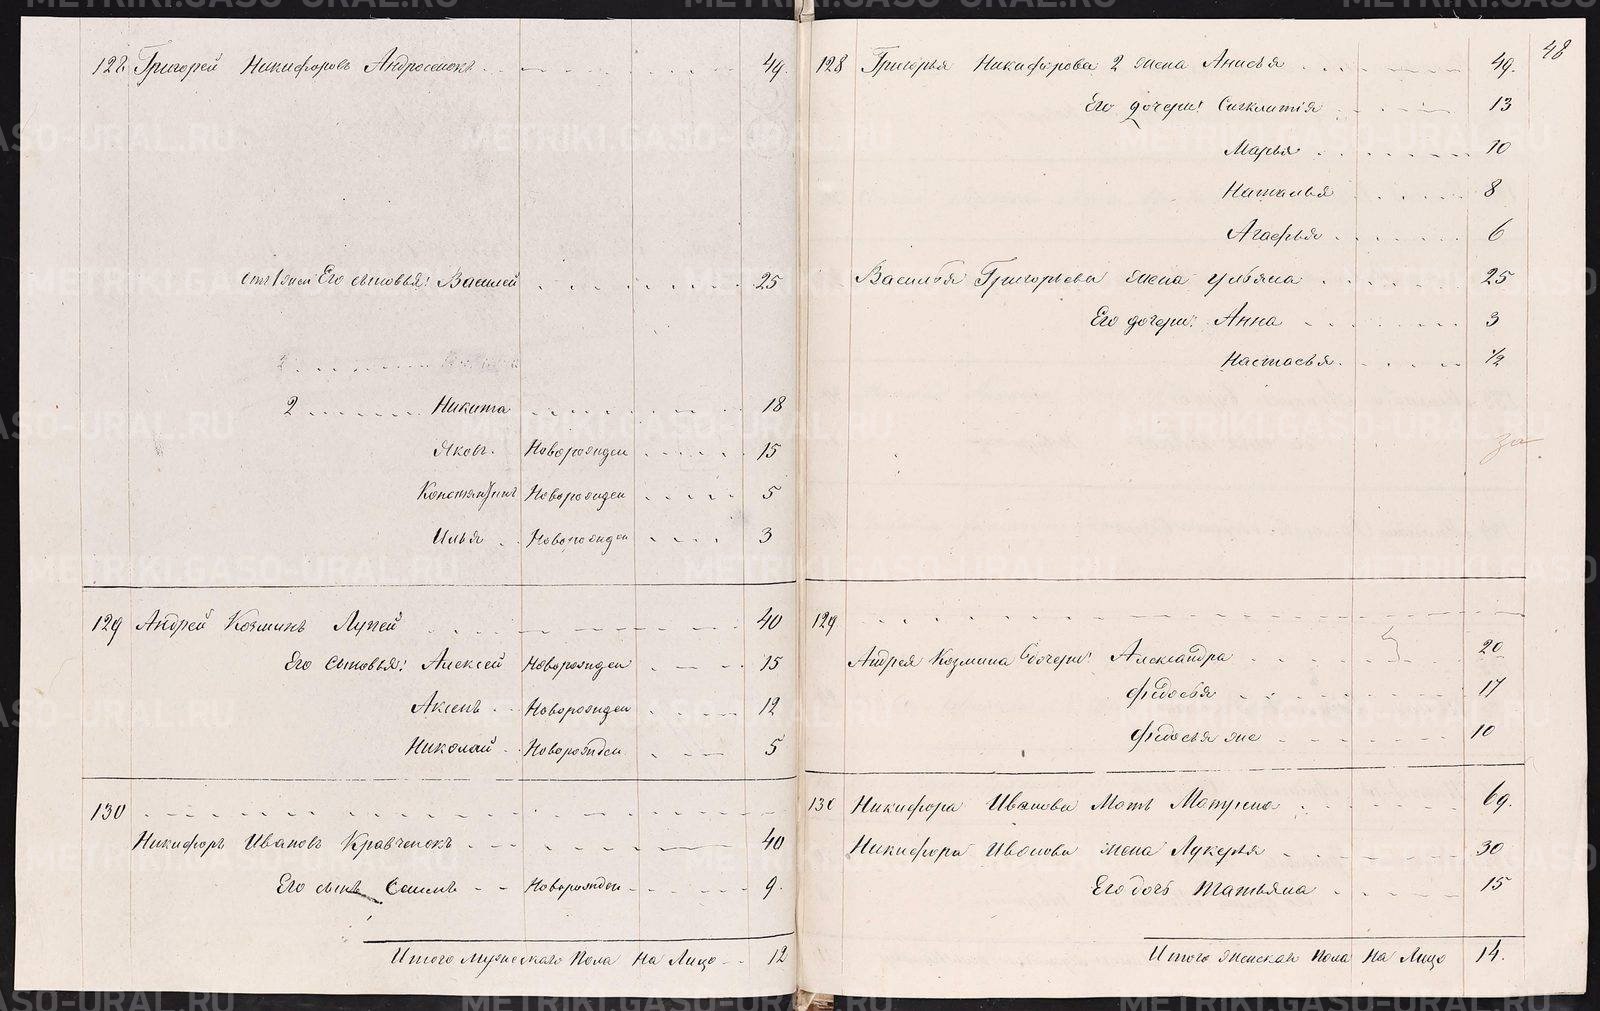 128 Григорей Никифоровъ Андросенокъ 49.
отъ 1 жен Его сыновья: Василей 25
2 Никита 18
Яковъ. Новорожден 15
Константинъ Новорожден 5
Илья Новорожден 3
129 Андрей Козминъ Лупей 40
Его сыновья: Алексей Новорожден 15
Аксенъ Новорожден 12
Николай Новорожден 5
130
Никифоръ Ивановъ Кравченокъ 40
Его сынъ Новорожден 9.
Итого мужескаго пола на Лицо 12
48
128 Григорья Никифорова 2 жена Анисья 49.
Его дочери: Сигклитія 13
Марья 10
Наталья 8
Агафья 6
Василья Григорьева жена Ульяна 25
Его дочери: Анна 3
Настасья 1/2
129
Андрея Козмина дочери: Александра 20
Федосья 17
Федосья же 10
130 Никифора Иванова Мать Матрена 69.
Никифора Иванова жена Лукерья 30
Его дочь Татьяна 15
Итого женска пола на Лицо 14.
METRIKI.GASO-URAL.RU